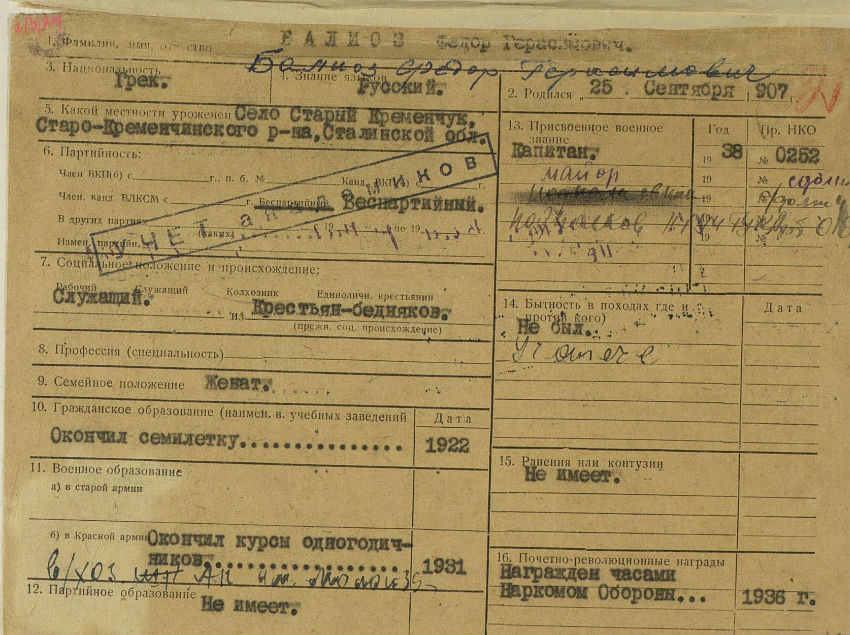 1. Фамилия, имя, отчество БАЛИОЗ Федор Герасимович.
Балиоз Федор Герасимович
3. Национальность Грек.
4. Знание языков Русский.
2. Родился 25 Сентября 907 г.
5. Какой местности уроженец Село Старый Кременчук.
Старо-Кременчинского р-на, Сталинской обл.
6. Партийность:
Член ВКП(б) с г., п. б. № Канд. ВКП(б) г.
Член. канд. ВЛКСМ с г. Беспартийный Беспартийный.
В других партиях (каких) 19 по 19
Измен. партийн.
УЧЕТ
7. Социальное положение и происхождение:
Рабочий Служащий Колхозник Единоличн. крестьянин
Служащий. из Крестьян-бедняков.
(прежн. соц. происхождение)
8. Профессия (специальность)
9. Семейное положение Женат.
10. Гражданское образование (наимен. в. учебных заведений Дата
Окончил семилетку............... 1922
11. Военное образование
а) в старой армии
б) в Красной армии Окончил курсы одногодич-
ников.................. 1931
в/хоз АК им. Молотова
12. Партийное образование Не имеет.
13. Присвоенное военное звание Год Пр. НКО
Капитан. 19 38 № 0252
майор 19 №
19 №
Подполковник 19 №
19 №
14. Бытность в походах где и против кого) Дата
Не был.
15. Ранения или контузии
Не имеет.
16. Почетно-революционные награды
Награжден часами
Наркомом Обороны... 1936 г.